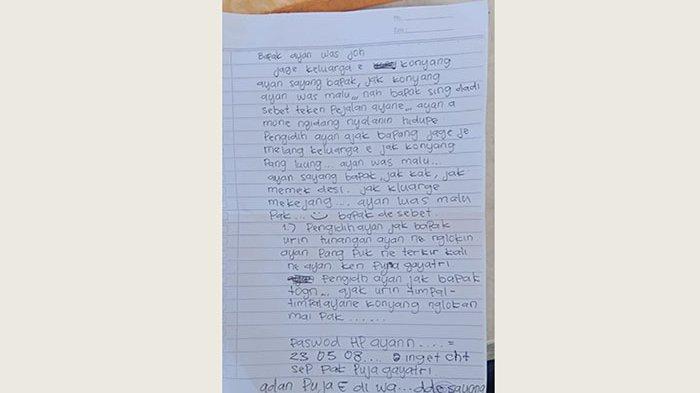 No.
Date.
Bapak ayan was joh
jage keluarga e konyang
ayan sayang bapak, jak konyang
ayan was malu,,, nah bapak sing dadi
sebet teken Pejalan ayane... ayan a
mone ngidang nyalanin hidupe
Pengidih ayan ajak bapang jage je
melang keluarga e jak konyang
Pang luung... ayan was malu...
ayan sayang bapak, jak kak, jak
memek desi. jak kluarge
mekejang.... ayan luas malu
Pak... bapak de sebet.
1.) Pengidih ayan jak bapak
urin tunangan ayan ne nglokin
ayan Pang Puk ne terkir kali
ne ayan ken Puja gayatri
Pengidih ayan jak bapak
togn... ajak urin timpal-
timpal ayane konyang nglokan
mai Pak......
Paswod HP ayann.... =
23 05 08.... inget cht
sep Pak Puja gayatri.
adan Puja E di wa... dde sayang